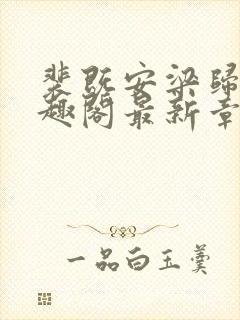 裴既安梁归
趣阁最新章
一品白玉羹